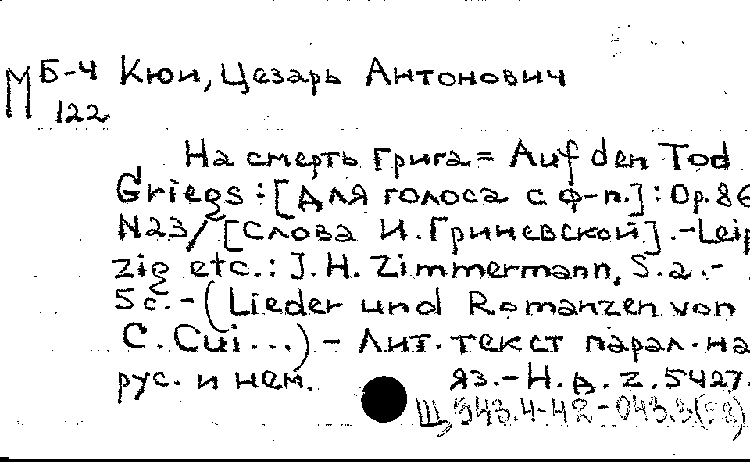 М Б-4 Кюи, Цезарь Антонович
122
На смерть Грига = Auf den Tod
Griegs : [Для голоса с ф-п.] : Op. 86
N23 / [Слова И. Гриневской]. - Leip
zig etc. : J. H. Zimmermann, S. a. -
5 с. - (Lieder und Romanzen von
C. Cui...) - Лит. текст парал. на
рус. и нем. яз. - Н. д. Z. 5427.
Щ 943.4-42-043.3